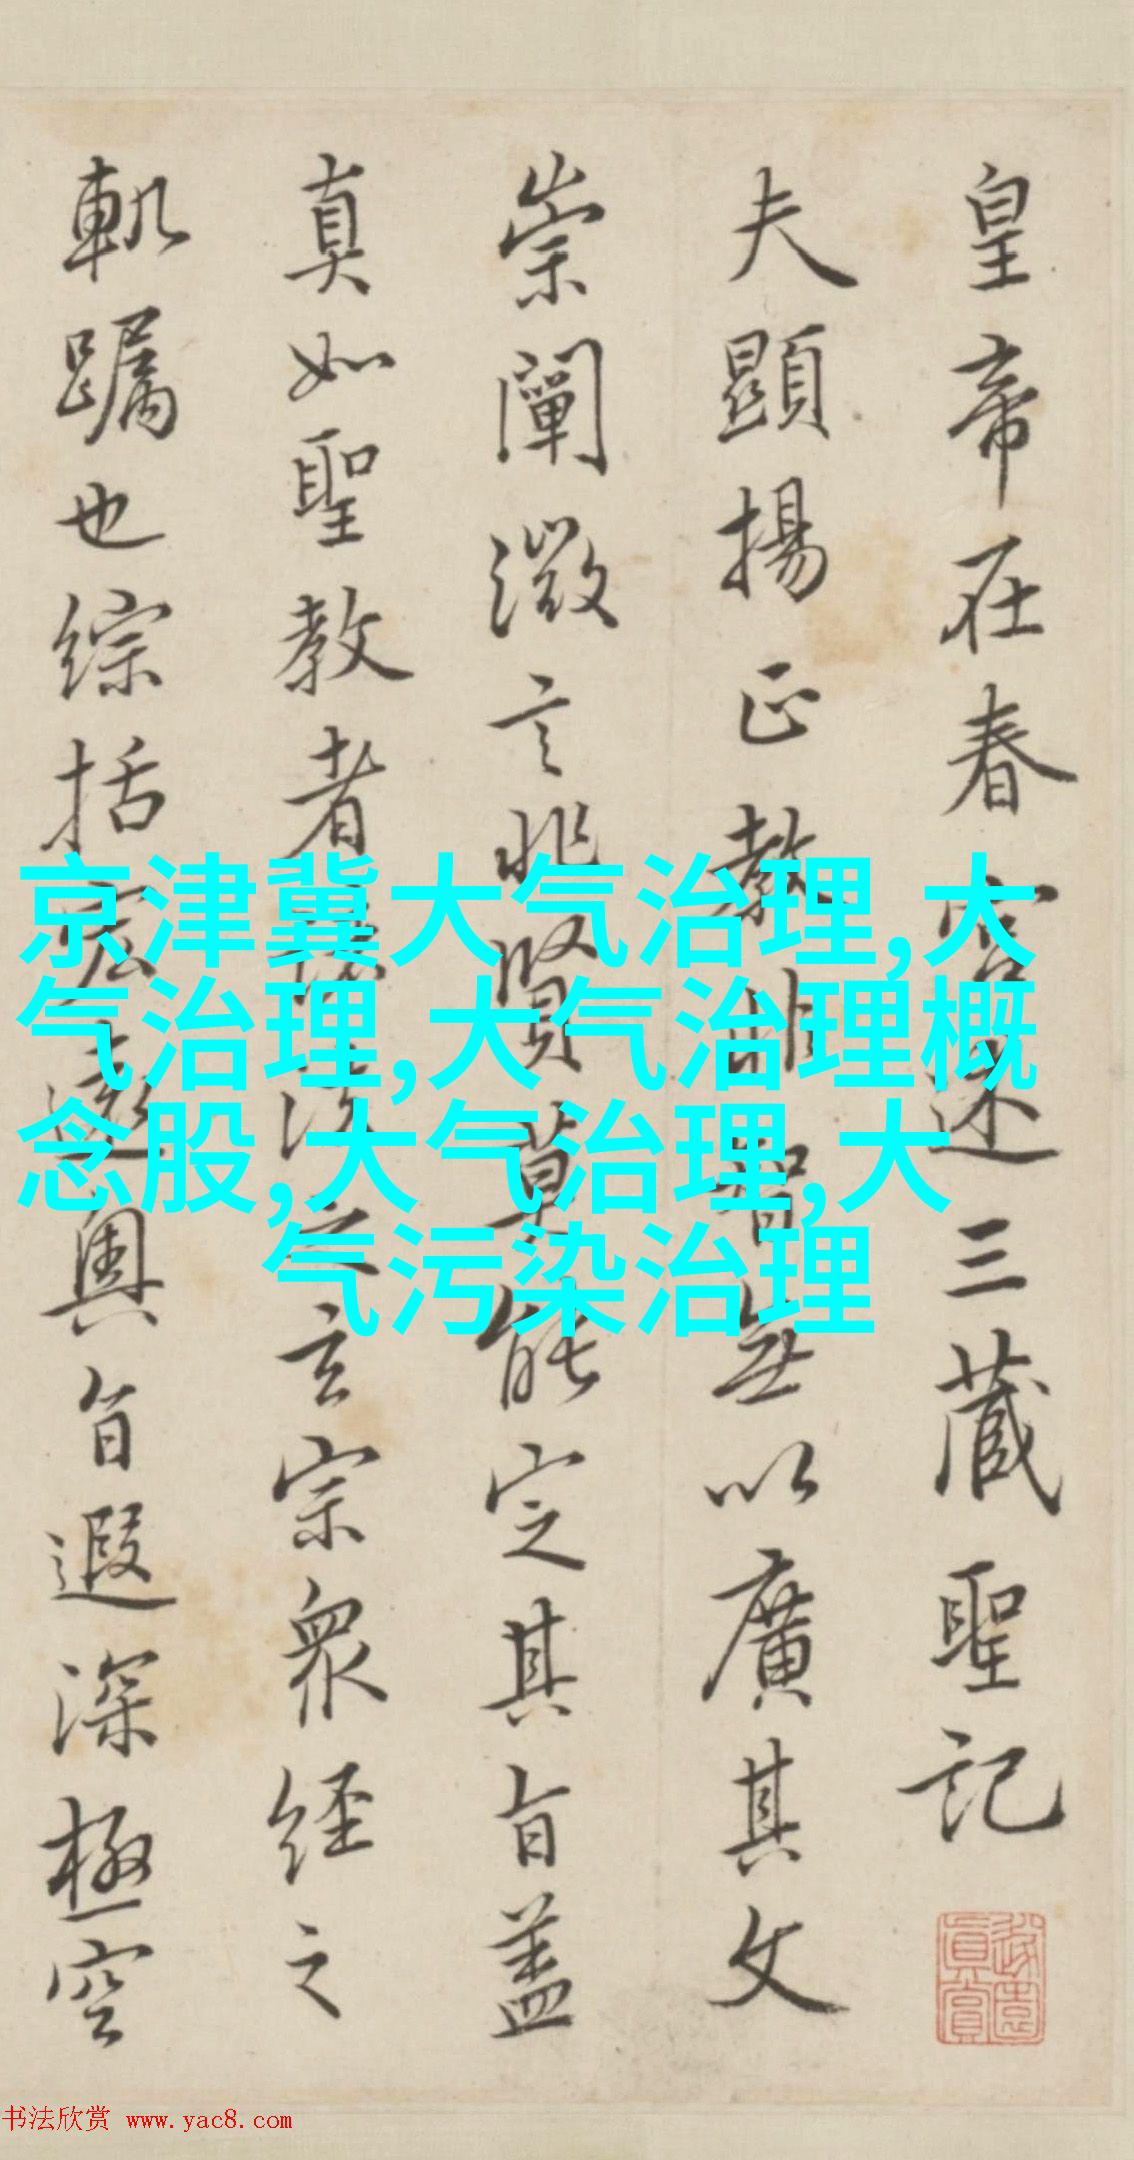 皇帝在春宮述三藏聖記
夫顯揚正教非智無以廣其文
崇闡微言非賢莫能定其旨盖
真如聖教者諸法之玄宗眾經之
軌躅也綜括宏遠奧旨遐深極空
京津冀大气治理,大
气治理,大气治理概
念股,大气治理,大
气污染治理
书法欣赏 www.yac8.com